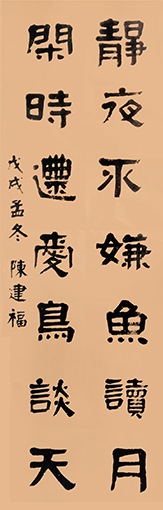 靜夜不嫌魚讀月
閑時還愛鳥談天
戊戌孟冬 陳建福